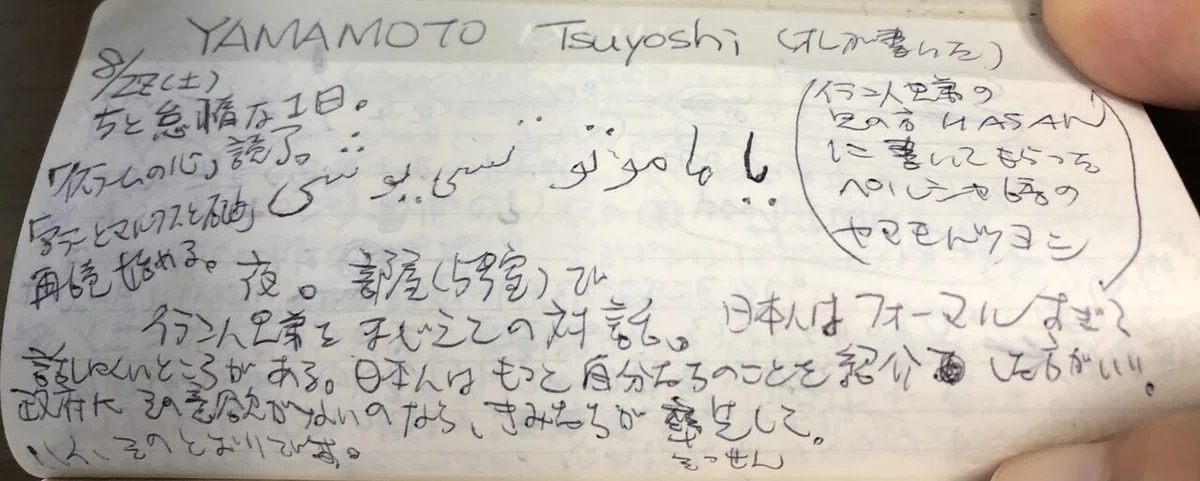 YAMAMOTO Tsuyoshi (オレが書いた)
8/22(土)
ちと怠惰な1日。
「イスラームの心」読了。
یا ما موتو تسی یو شی
(イラン人兄弟の
兄の方 HASAN
に書いてもらった
ペルシャ語の
ヤマモトツヨシ)
とマルクスと
再読始める。
夜。部屋(5号室)で
イラン人兄弟をまじえての対話。日本人はフォーマルすぎて
話しにくいところがある。日本人はもっと自分たちのことを紹介した方がいい。
政府にその意欲がないのなら、きみたちが率先して。
そっせん
そのとおりです。